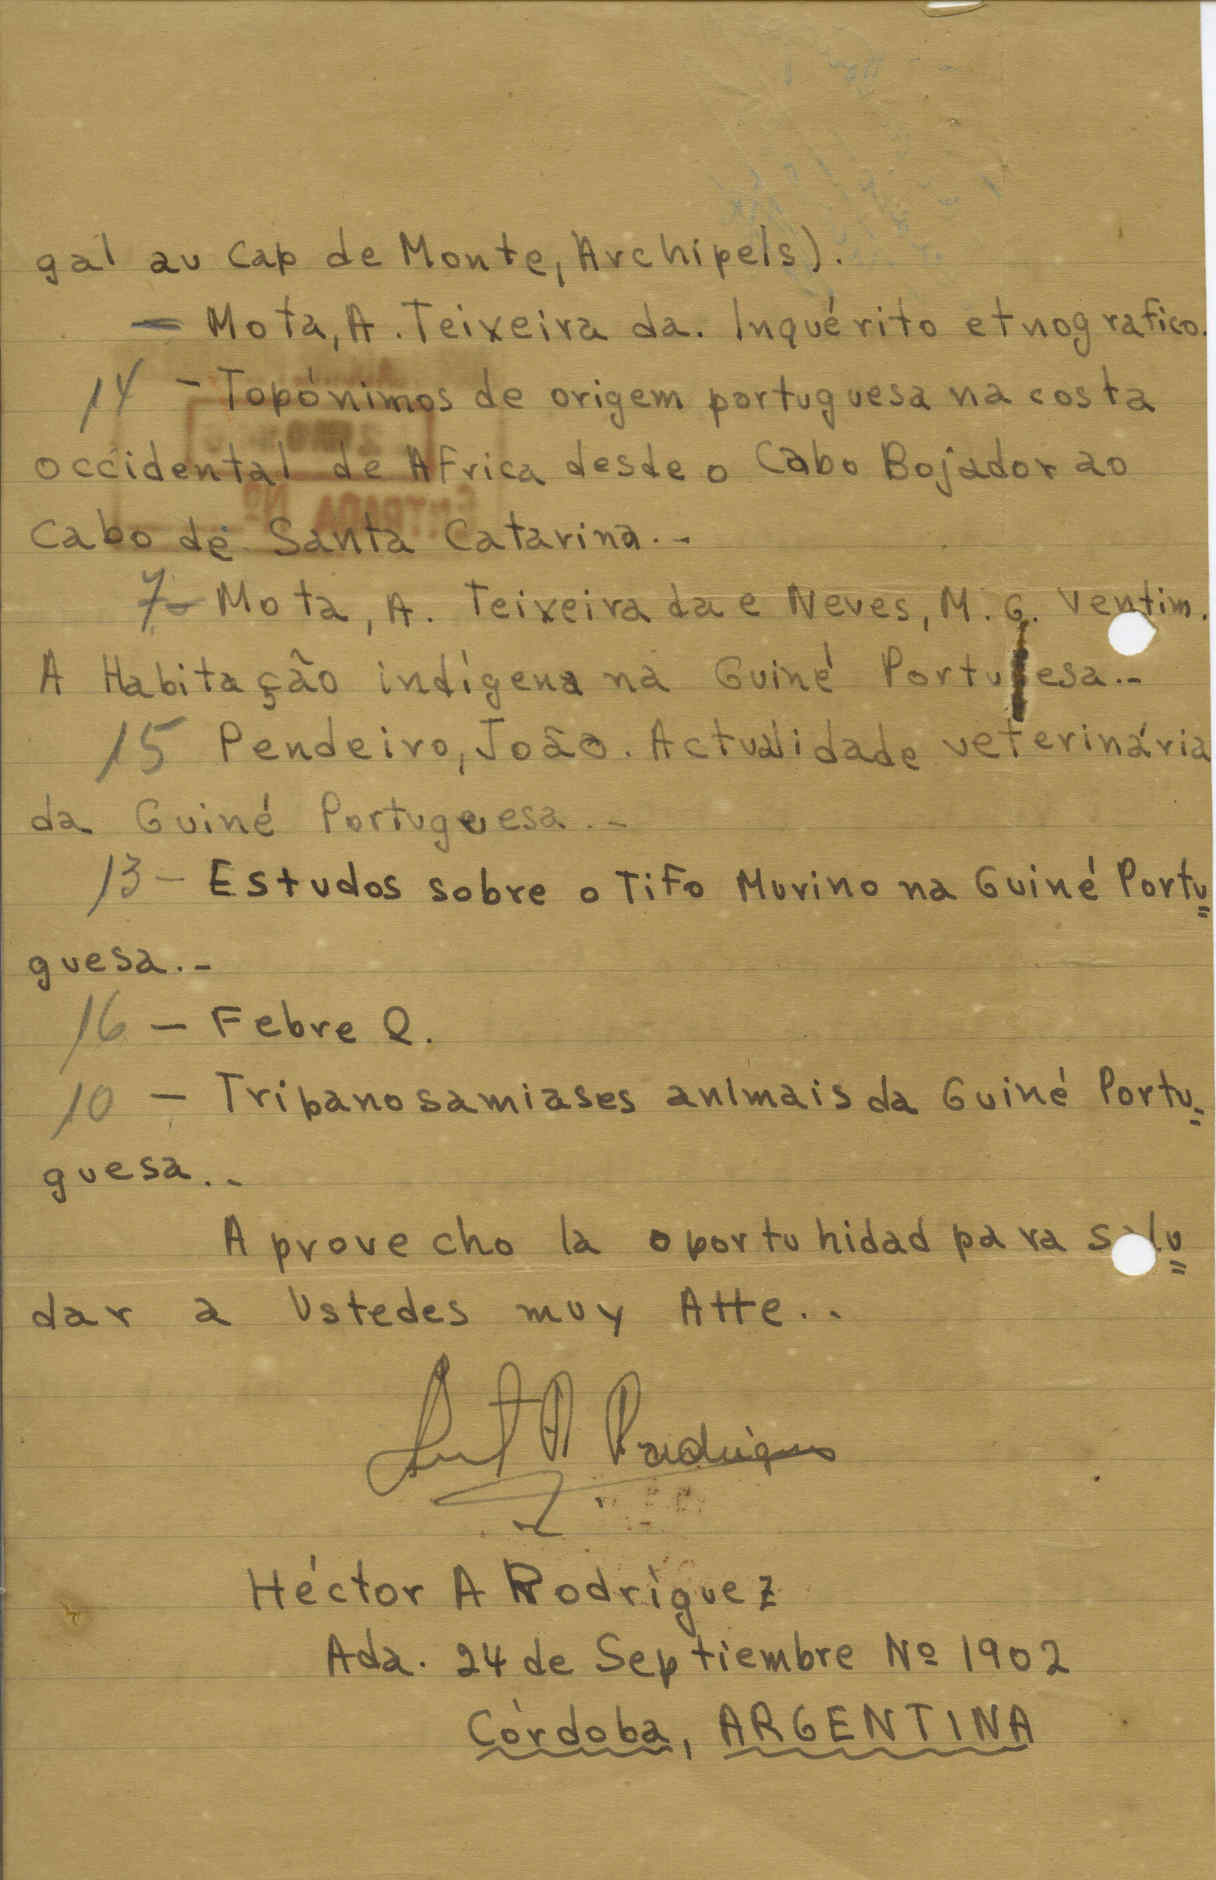 gal au Cap de Monte, Archipels).
— Mota, A. Teixeira da. Inquérito etnografico.
14 - Topónimos de origem portuguesa na costa
occidental de Africa desde o Cabo Bojador ao
Cabo de Santa Catarina.-
7- Mota, A. Teixeira da e Neves, M. G. Ventim.
A Habitação indígena na Guiné Portu esa.-
15 Pendeiro, João. Actualidade veterinária
da Guiné Portuguesa.-
13 - Estudos sobre o Tifo Murino na Guiné Portu=
guesa.-
16 - Febre Q.
10 - Tripanosamiases animais da Guiné Portu=
guesa.-
Aprovecho la oportunidad para salu=
dar a Ustedes muy Atte..
Héctor A Rodríguez
Ada. 24 de Septiembre Nº 1902
Córdoba, ARGENTINA